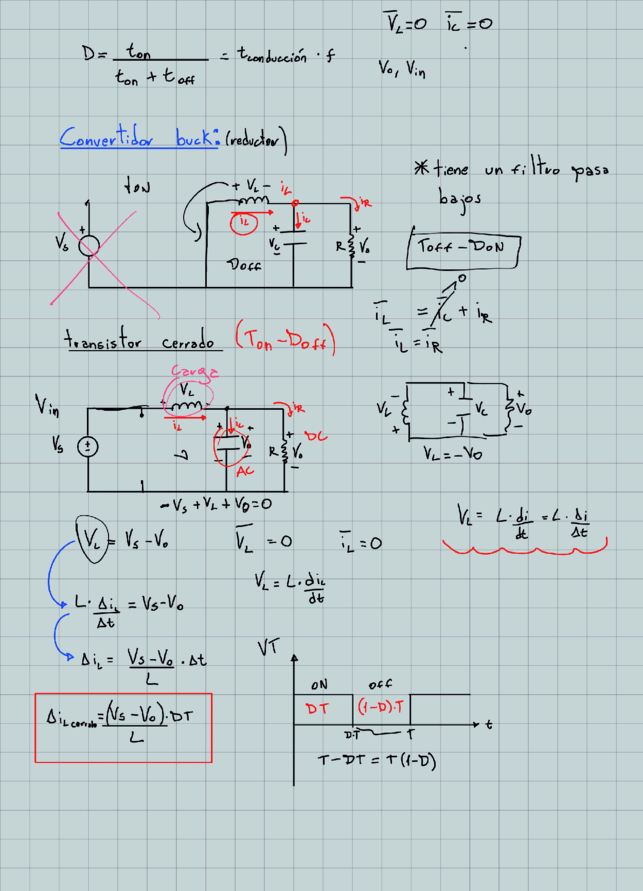 V̅L=0 i̅c=0
D= ton / (ton + toff) = tconducción · f
Vo, Vin
Convertidor buck: (reductor)
* tiene un filtro pasa
bajos
ton
+ VL -
iL
iL
ic
iR
VS
+
+
Vc
-
R
+
Vo
-
DOFF
TOFF-DON
i̅L = i̅c + iR
0
i̅L = i̅R
transistor cerrado (Ton-Doff)
Carga
VL
Vin
iL
ic
iR
VS
+
Vo
-
R
+
Vo
-
DC
AC
-VS+VL+VO=0
-
VL
+
+
Vc
-
+
Vo
-
VL=-VO
VL = VS-VO
V̅L =0 i̅L =0
VL= L·di/dt = L·Δi/Δt
VL=L·diL/dt
L·ΔiL/Δt = VS-VO
ΔiL= (VS-VO)/L · Δt
ΔiL cerrado= (VS-VO)/L · DT
VT
ON OFF
DT (1-D)·T
D·T T t
T-DT = T(1-D)